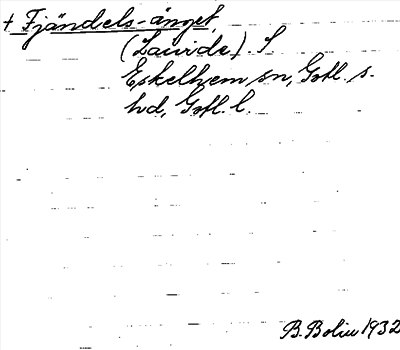 + Fjändels-änget,
(Lauvide). S
Eskelhem sn, Gotl. s.
hd, Gotl. l.
B. Bolin 1932